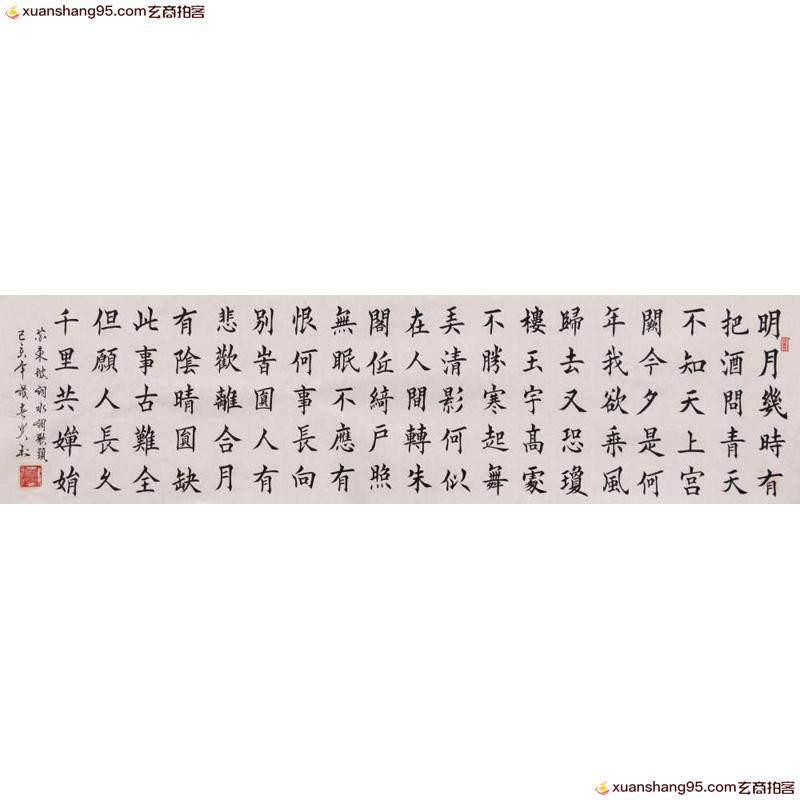 xuanshang95.com玄商拍客
xuanshang95.com玄商拍客
明月幾時有
把酒問青天
不知天上宮
闕今夕是何
年我欲乘風
歸去又恐瓊
樓玉宇高處
不勝寒起舞
弄清影何似
在人間轉朱
閣低綺戶照
無眠不應有
恨何事長向
別皆圓人有
悲歡離合月
有陰晴圓缺
此事古難全
但願人長久
千里共嬋娟
蘇東坡詞水調歌頭
己亥年
xuanshang95.com玄商拍客
xuanshang95.com玄商拍客